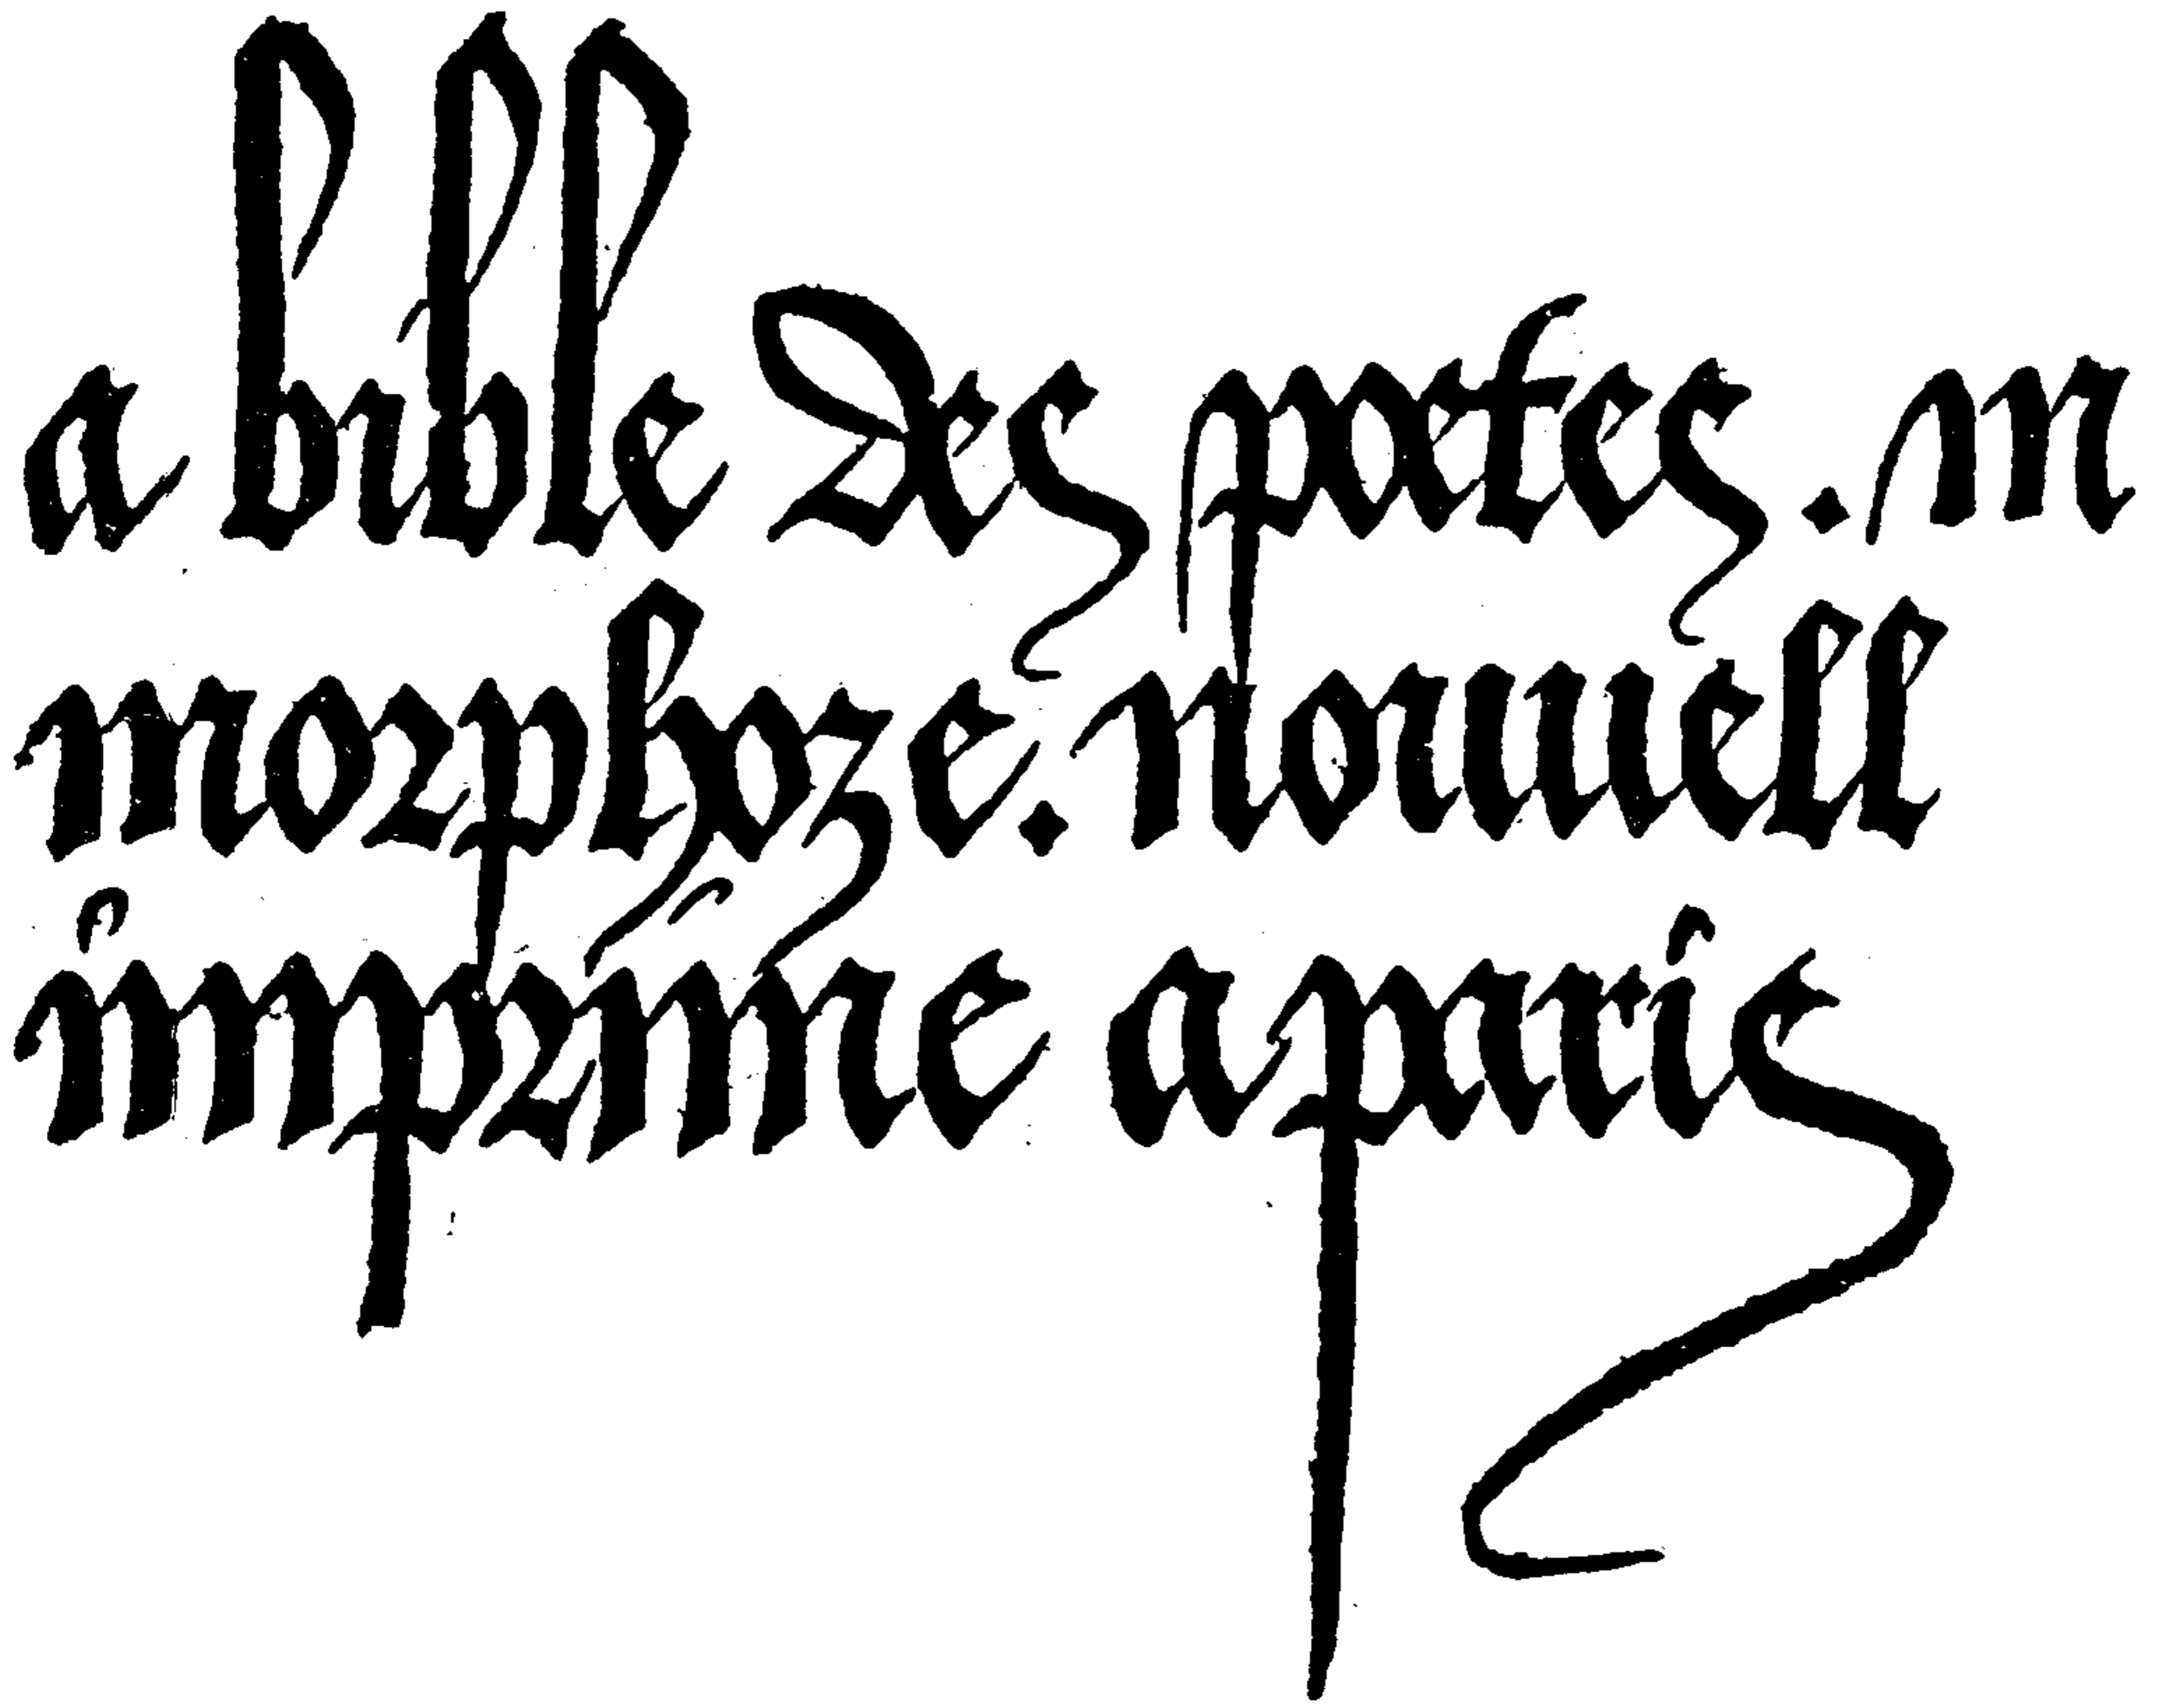 a bible des poetes . m
morphoze . nouuell
imprime a paris